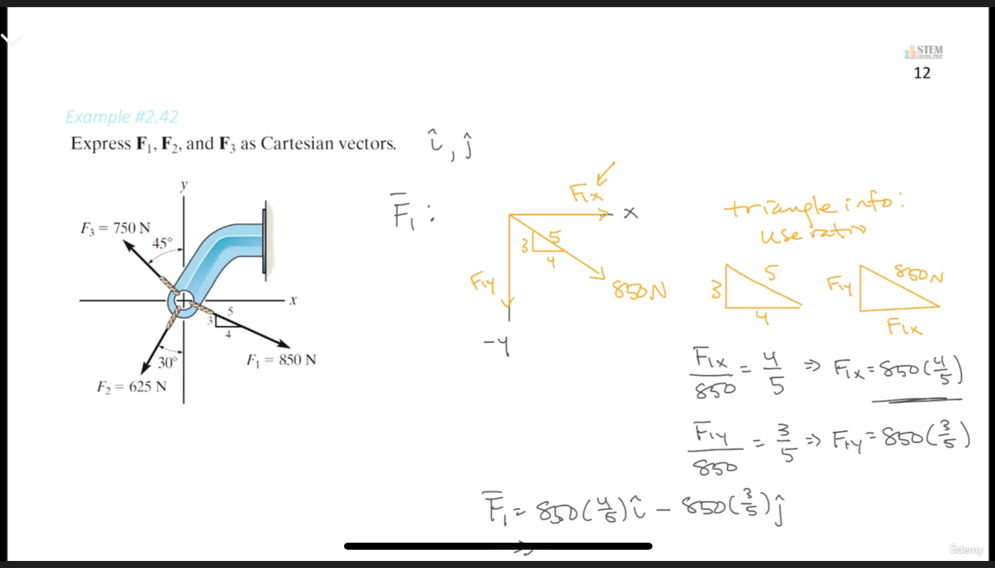 STEM
12
Example #2.42
Express F₁, F₂, and F₃ as Cartesian vectors. î, ĵ
y
F₃ = 750 N
45°
x
5
3
4
30°
F₁ = 850 N
F₂ = 625 N
F̄₁ :
F₁x
x
5
3
4
F₁y
850N
-y
triangle info:
use ratio
5
3
4
850N
F₁y
F₁x
F₁x/850 = 4/5 => F₁x = 850(4/5)
F₁y/850 = 3/5 => F₁y = 850(3/5)
F̄₁ = 850(4/5)î - 850(3/5)ĵ
ûdemy